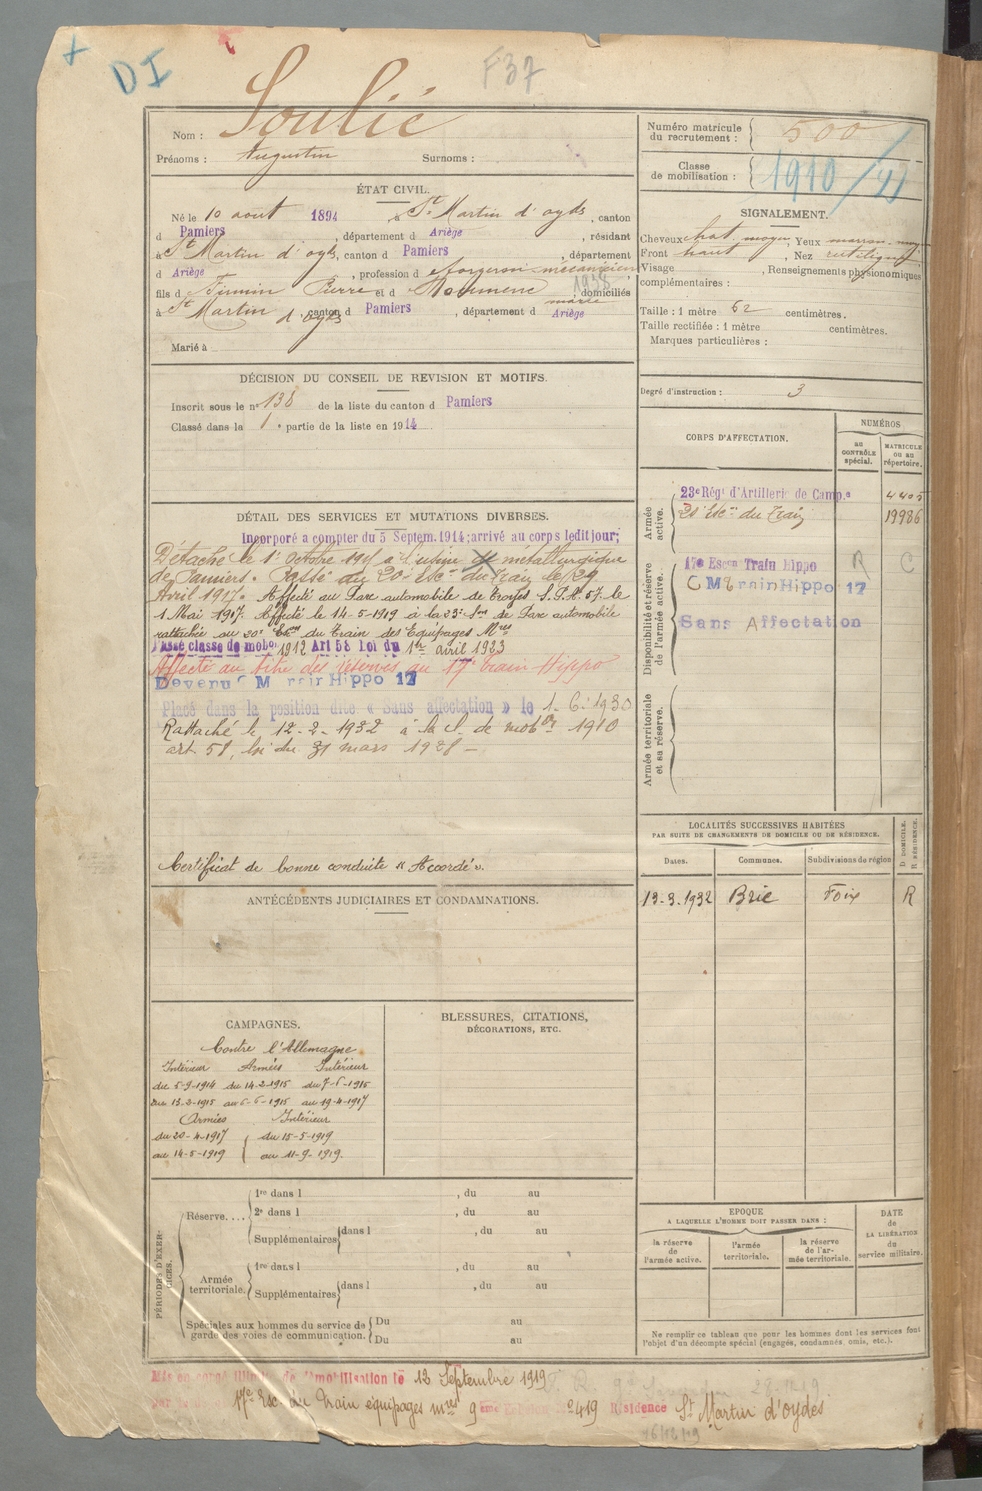 D I
F37
Nom : Soulié
Prénoms : Augustin Surnoms :
Numéro matricule du recrutement : 500
Classe de mobilisation : 1910
ÉTAT CIVIL.
Né le 10 août 1894 à St Martin d'oyds, canton
d Pamiers, département d Ariège, résidant
à St Martin d'oyds, canton d Pamiers, département
d Ariège, profession de forgeron mécanicien
1938
fils de Firmin Pierre et d, domiciliés
mariée
à St Martin d'oyds canton d Pamiers, département d Ariège
Marié à
SIGNALEMENT.
Cheveux chat. moyen, Yeux marron
Front haut, Nez rectiligne
Visage, Renseignements physionomiques
complémentaires :
Taille : 1 mètre 62 centimètres.
Taille rectifiée : 1 mètre centimètres.
Marques particulières :
Degré d'instruction : 3
DÉCISION DU CONSEIL DE REVISION ET MOTIFS.
Inscrit sous le n° 138 de la liste du canton d Pamiers
Classé dans la 1e partie de la liste en 1914
DÉTAIL DES SERVICES ET MUTATIONS DIVERSES.
Incorporé a compter du 5 Septem. 1914; arrivé au corps ledit jour;
Détaché le 1er octobre à l'usine métallurgique
de Pamiers. Passé au 20e Escon du Train le 29
Avril 1917. Affecté au Parc automobile de Troyes S.P.A. 57 le
1 Mai 1917. Affecté le 14-5-1919 à la 23e Son de Parc automobile
rattachée au 20e Escon du Train des Equipages Mres
Passé classe de mob. 1912 Art 58 Loi du 1er avril 1923
Affecté au titre des réserves au 17e train Hippo
Devenu C M Train Hippo 17
Placé dans la position dite « Sans affectation » le 1-6-1930
Rattaché le 12-2-1932 à la cl. de mobon 1910
art. 58, loi du 31 mars 1928 –
Certificat de bonne conduite « Accordé ».
CORPS D'AFFECTATION.
NUMÉROS
AU CONTRÔLE spécial.
MATRICULE OU AU répertoire.
Armée active.
23e Régt d'Artillerie de Campe 4405
20 Escon du Train 19986
Disponibilité et réserve de l'armée active.
17e Escon Train Hippo R C
C M Train Hippo 17
Sans Affectation
Armée territoriale et sa réserve.
LOCALITÉS SUCCESSIVES HABITÉES
PAR SUITE DE CHANGEMENTS DE DOMICILE OU DE RÉSIDENCE.
Dates. Communes. Subdivisions de région D DOMICILE. R RÉSIDENCE.
13-3-1932 Brie Foix R
ANTÉCÉDENTS JUDICIAIRES ET CONDAMNATIONS.
CAMPAGNES.
Contre l'Allemagne
Intérieur Armées Intérieur
du 5-9-1914 du 14-2-1915 du 7-6-1915
au 13-2-1915 au 6-6-1915 au 19-4-1917
Armées Intérieur
du 20-4-1917 du 15-5-1919
au 14-5-1919 au 11-9-1919.
BLESSURES, CITATIONS,
DÉCORATIONS, ETC.
PÉRIODES D'EXERCICES.
Réserve.... 1re dans l, du au
2e dans l, du au
Supplémentaires dans l, du au
Armée territoriale. 1re dans l, du au
Supplémentaires dans l, du au
Spéciales aux hommes du service de garde des voies de communication. Du au
Du au
EPOQUE
A LAQUELLE L'HOMME DOIT PASSER DANS :
la réserve de l'armée active.
l'armée territoriale.
la réserve de l'armée territoriale.
DATE de LA LIBÉRATION du service militaire.
Ne remplir ce tableau que pour les hommes dont les services font
l'objet d'un décompte spécial (engagés, condamnés, omis, etc.).
Mis en congé illimité de démobilisation le 12 Septembre 1919
17e Esc. du Train équipages mres 9ème Echelon No 419 Résidence St Martin d'oydes
16/12/19